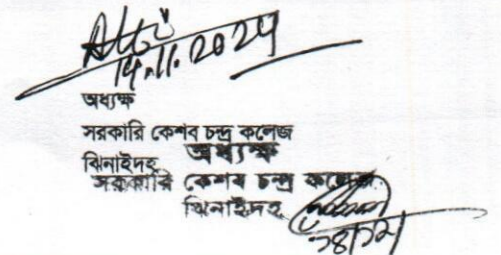 14.11.2024
অধ্যক্ষ
সরকারি কেশব চন্দ্র কলেজ
অধ্যক্ষ
ঝিনাইদহ
সরকারি কেশব চন্দ্র কলেজ
ঝিনাইদহ